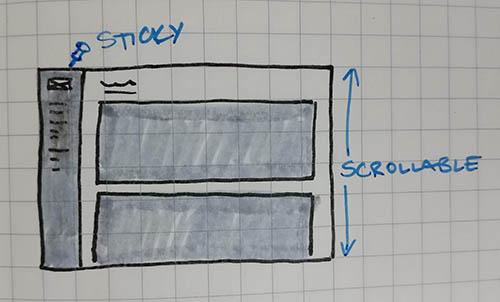 STICKY
SCROLLABLE